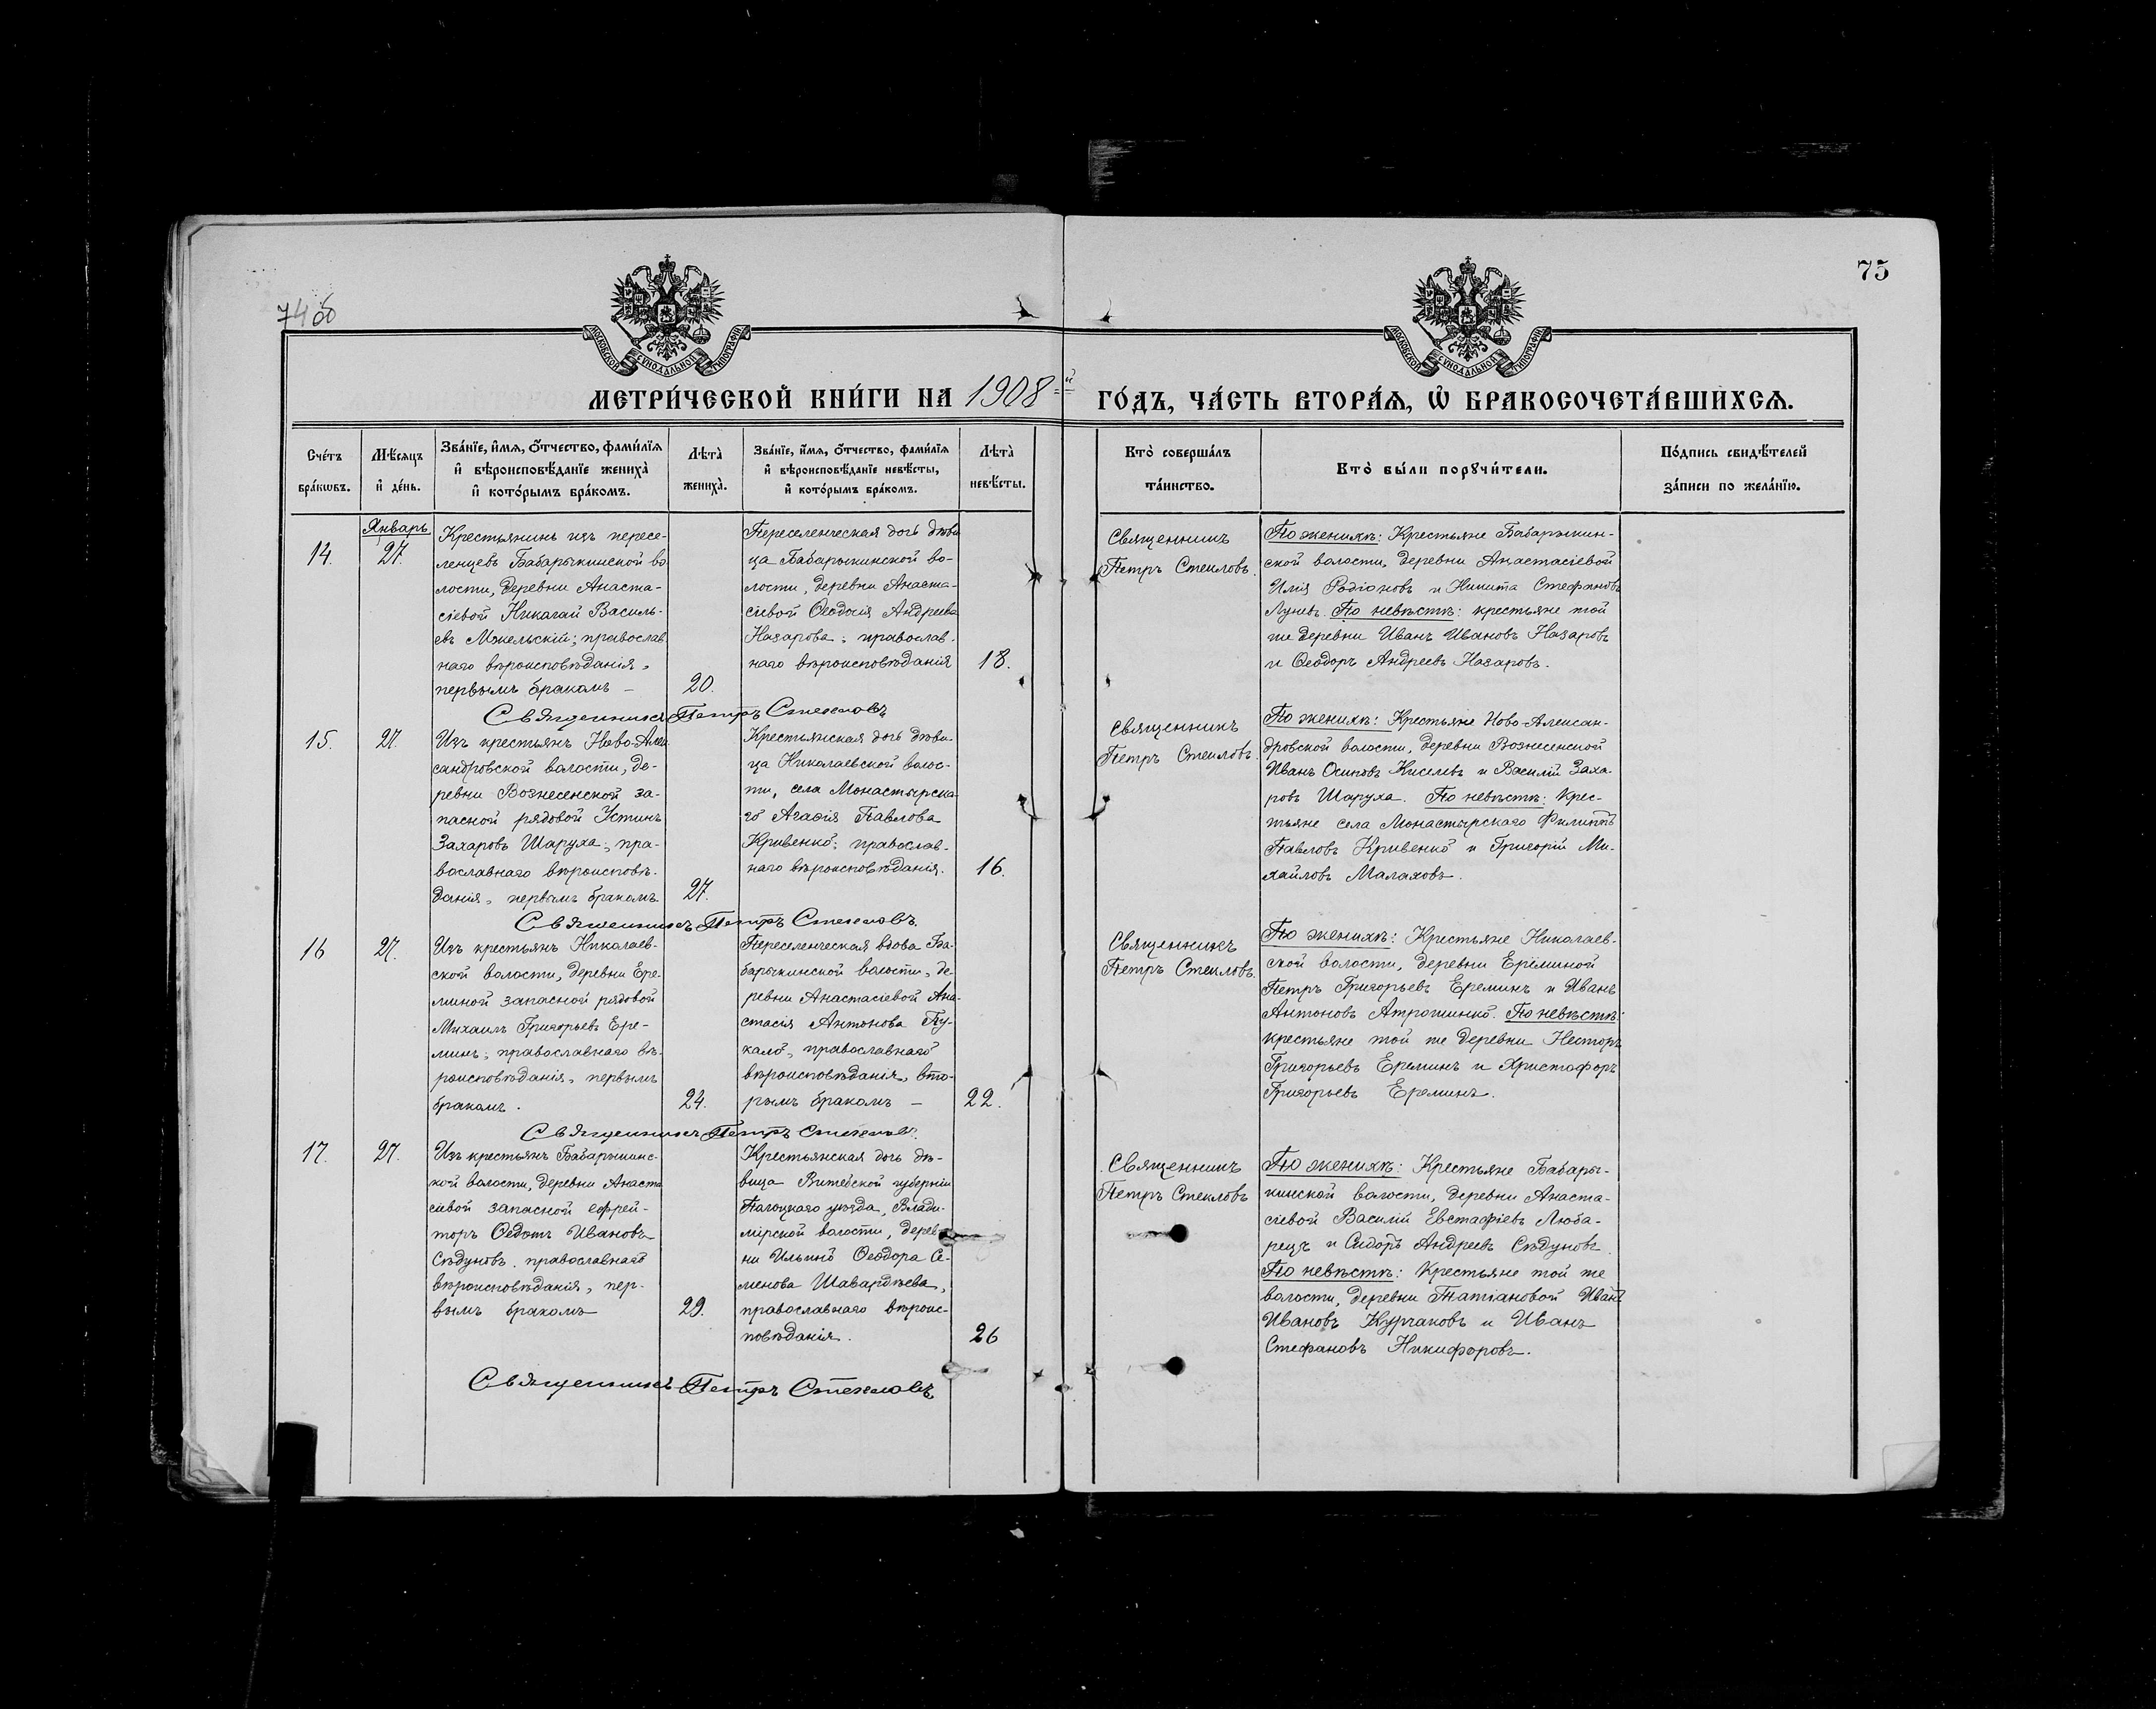 74 об
75
МОСКОВСКОЙ СУНОДАЛЬНОЙ ТИПОГРАФІИ
МОСКОВСКОЙ СУНОДАЛЬНОЙ ТИПОГРАФІИ
МЕТРИ́ЧЕСКОЙ КНИ́ГИ НА 1908-й ГО́ДЪ, ЧА́СТЬ ВТОРА́Я, Ѡ҆ БРАКОСОЧЕТА́ВШИХСЯ.
Сче́тъ бра́кѡвъ.
Мѣ́сяцъ и҆ де́нь.
Зва́нїе, и҆́мя, ѻ҆́тчество, фами́лїя
и҆ вѣроисповѣ́данїе жениха̀
и҆ кото́рымъ бра́комъ.
Лѣта̀ жениха̀.
Зва́нїе, и҆́мя, ѻ҆́тчество, фами́лїя
и҆ вѣроисповѣ́данїе невѣ́сты,
и҆ кото́рымъ бра́комъ.
Лѣта̀ невѣ́сты.
Кто̀ соверша́лъ
та́инство.
Кто̀ бы́ли порꙋчи́тели.
По́дпись свидѣ́телей
за́писи по жела́нїю.
14.
Январь
27.
Крестьянинъ изъ пересе-
ленцевъ Бабарыкинской во
лости, деревни Анаста-
сіевой Николай Василь-
евъ Мокельскій; православ
наго вѣроисповѣданія,
первымъ бракомъ –
20.
Переселенческая дочь дѣви
ца Бабарыкинской во-
лости, деревни Анаста-
сіевой Ѳеодосія Андреева
Назарова; православ-
наго вѣроисповѣданія
18.
Священникъ
Петръ Стекловъ.
По женихѣ: Крестьяне Бабарыкин-
ской волости, деревни Анастасіевой
Илія Родіоновъ и Никита Стефановъ
Луневъ. По невѣстѣ: крестьяне той
же деревни Иванъ Ивановъ Назаровъ
и Ѳеодоръ Андреевъ Назаровъ.
Священникъ Петръ Стекловъ
15.
27.
Изъ крестьянъ Ново-Алек
сандровской волости, де-
ревни Вознесенской за-
пасной рядовой Устинъ
Захаровъ Шаруха, пра-
вославнаго вѣроисповѣ-
данія, первымъ бракомъ
27.
Крестьянская дочь дѣви-
ца Николаевской волос-
ти, села Монастырска-
го Агаѳія Павлова
Кривенко; православ-
наго вѣроисповѣданія.
16.
Священникъ
Петръ Стекловъ.
По женихѣ: Крестьяне Ново-Алексан-
дровской волости, деревни Вознесенской
Иванъ Осиповъ Киселевъ и Василій Заха-
ровъ Шаруха. По невѣстѣ: Крес-
тьяне села Монастырскаго Филиппъ
Павловъ Кривенко и Григорій Ми-
хайловъ Малаховъ.
Священникъ Петръ Стекловъ.
16
27.
Изъ крестьянъ Николаев-
ской волости, деревни Ере-
миной запасной рядовой
Михаилъ Григорьевъ Ере-
минъ; православнаго вѣ-
роисповѣданія, первымъ
бракомъ.
24.
Переселенческая вдова Ба-
барыкинской волости, де
ревни Анастасіевой Ана-
стасія Антонова Пу-
кало, православнаго
вѣроисповѣданія, вто-
рымъ бракомъ –
22.
Священникъ
Петръ Стекловъ.
По женихѣ: Крестьяне Николаев-
ской волости, деревни Ереминой
Петръ Григорьевъ Ереминъ и Иванъ
Антоновъ Атрошинко. По невѣстѣ:
крестьяне той же деревни Несторъ
Григорьевъ Ереминъ и Христофоръ
Григорьевъ Ереминъ.
Священникъ Петръ Стекловъ.
17.
27.
Изъ крестьянъ Бабарыкинс-
кой волости, деревни Анаста
сіевой запасной ефрей-
торъ Ѳедотъ Ивановъ
Сѣдуновъ, православнаго
вѣроисповѣданія, пер-
вымъ бракомъ
29.
Крестьянская дочь дѣ-
вица Витебской губерніи
Полоцкаго уѣзда, Влади-
мірской волости, дерев
ни Ильино Ѳеодора Се-
менова Шавардѣева,
православнаго вѣроис-
повѣданія.
26
Священникъ
Петръ Стекловъ
По женихѣ: Крестьяне Бабары-
кинской волости, деревни Анаста-
сіевой Василій Евстафіевъ Люба-
рецъ и Сидоръ Андреевъ Сѣдуновъ.
По невѣстѣ: Крестьяне той же
волости, деревни Татіановой Иванъ
Ивановъ Курчаковъ и Иванъ
Стефановъ Никифоровъ.
Священникъ Петръ Стекловъ